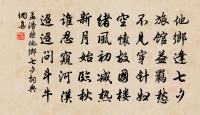 他鄉逢七夕
旅館益羈愁
不見穿針婦
空懷故國樓
緒風初減熱
新月始臨秋
誰忍窺河漢
迢迢問斗牛
孟浩然他鄉七夕詞典
網書